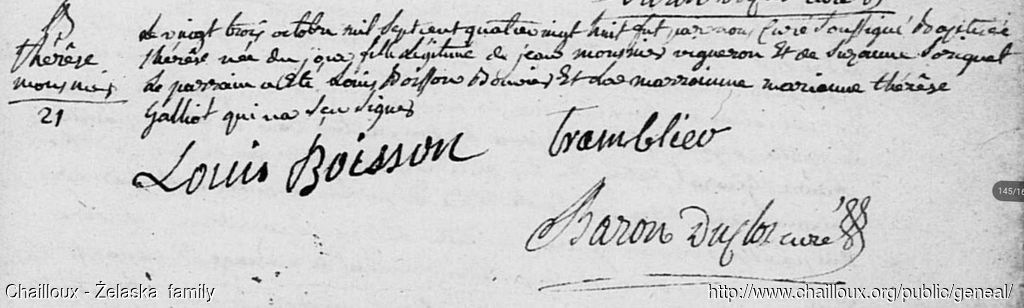 B
Thérèse
monsnies
21
Le vingt trois octobre mil sept cent quatre vingt huit fut par nous Curé soussigné Baptisée
thérèse née du jour fille légitime de jean monsnies vigneron Et de Suzanne
Le parrain a Eté Louis Boisson Et la marrainne marianne thérèse
Galliot qui na sçu signer
Louis Boisson Tramblieo
Baron curé
145/16
Chailloux - Żelaska family http://www.chailloux.org/public/geneal/